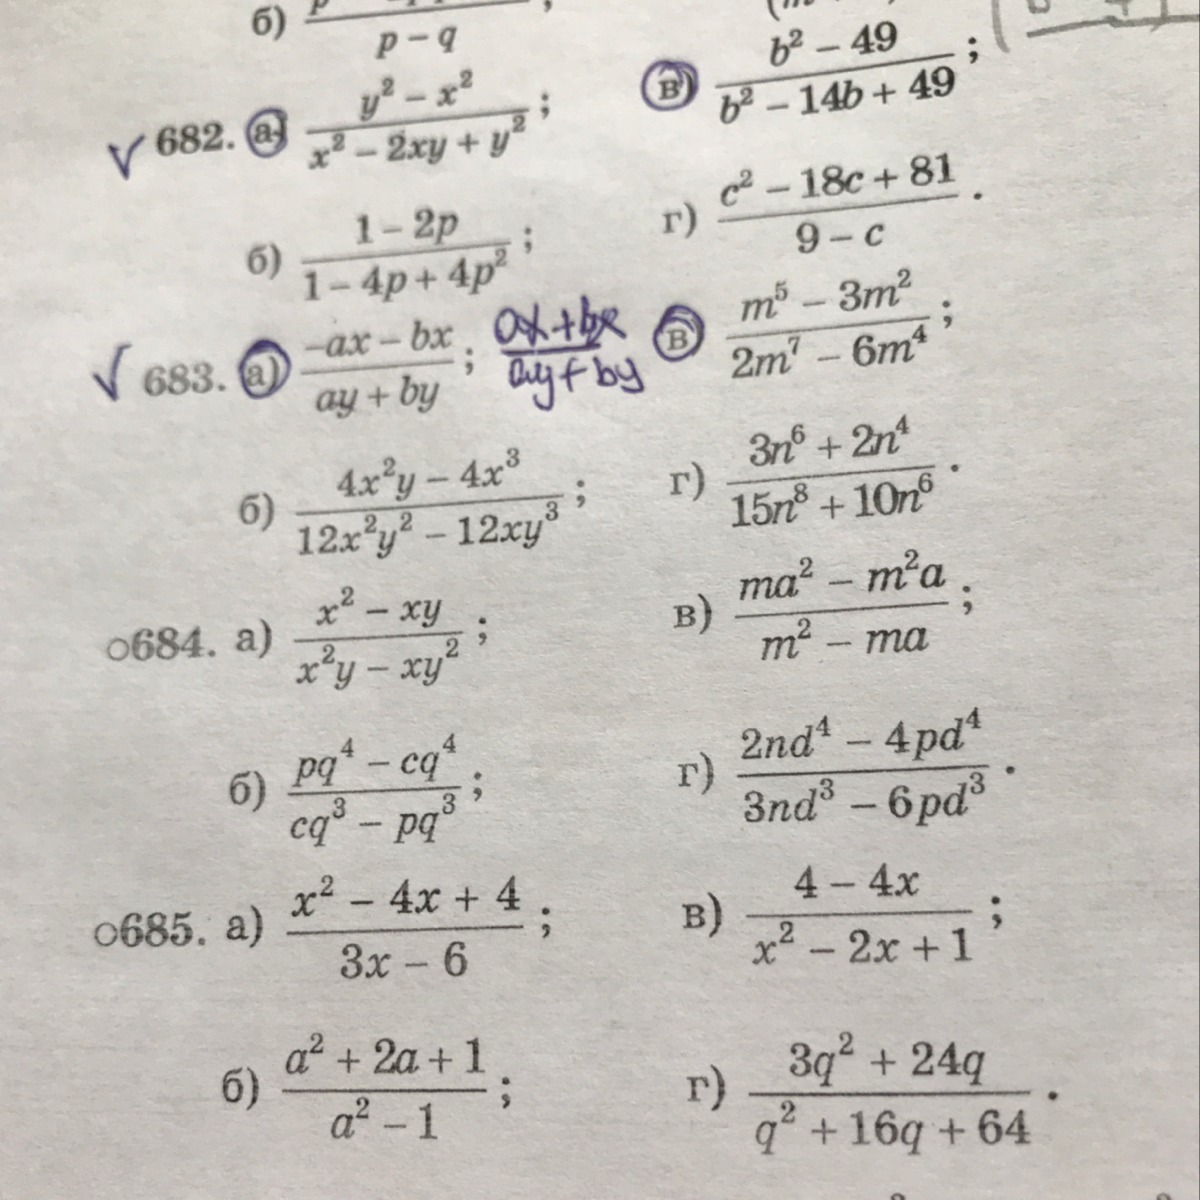 б) p - q ;
682. а) (y² - x²)/(x² - 2xy + y²) ; в) (b² - 49)/(b² - 14b + 49) ;
б) (1 - 2p)/(1 - 4p + 4p²) ; г) (c² - 18c + 81)/(9 - c) .
683. а) (-ax - bx)/(ay + by) ; (ax + bx)/(ay + by) в) (m⁵ - 3m²)/(2m⁷ - 6m⁴) ;
б) (4x²y - 4x³)/(12x²y² - 12xy³) ; г) (3n⁶ + 2n⁴)/(15n⁸ + 10n⁶) .
○684. а) (x² - xy)/(x²y - xy²) ; в) (ma² - m²a)/(m² - ma) ;
б) (pq⁴ - cq⁴)/(cq³ - pq³) ; г) (2nd⁴ - 4pd⁴)/(3nd³ - 6pd³) .
○685. а) (x² - 4x + 4)/(3x - 6) ; в) (4 - 4x)/(x² - 2x + 1) ;
б) (a² + 2a + 1)/(a² - 1) ; г) (3q² + 24q)/(q² + 16q + 64) .